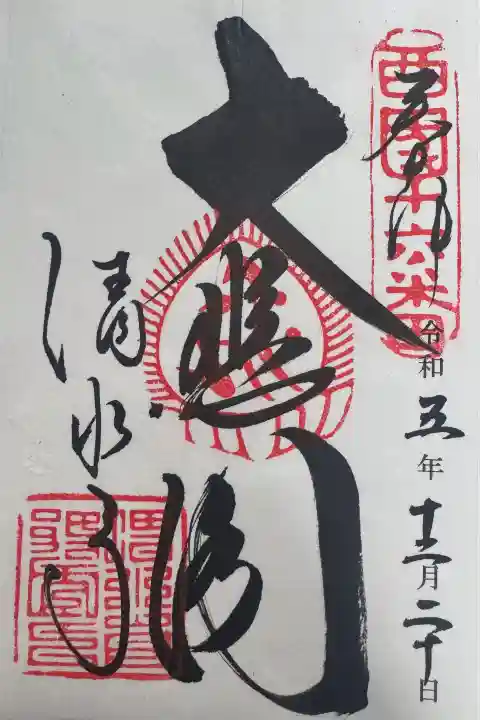 奉拝
西国十六番
令和五年十二月二十日
大悲閣
清水寺